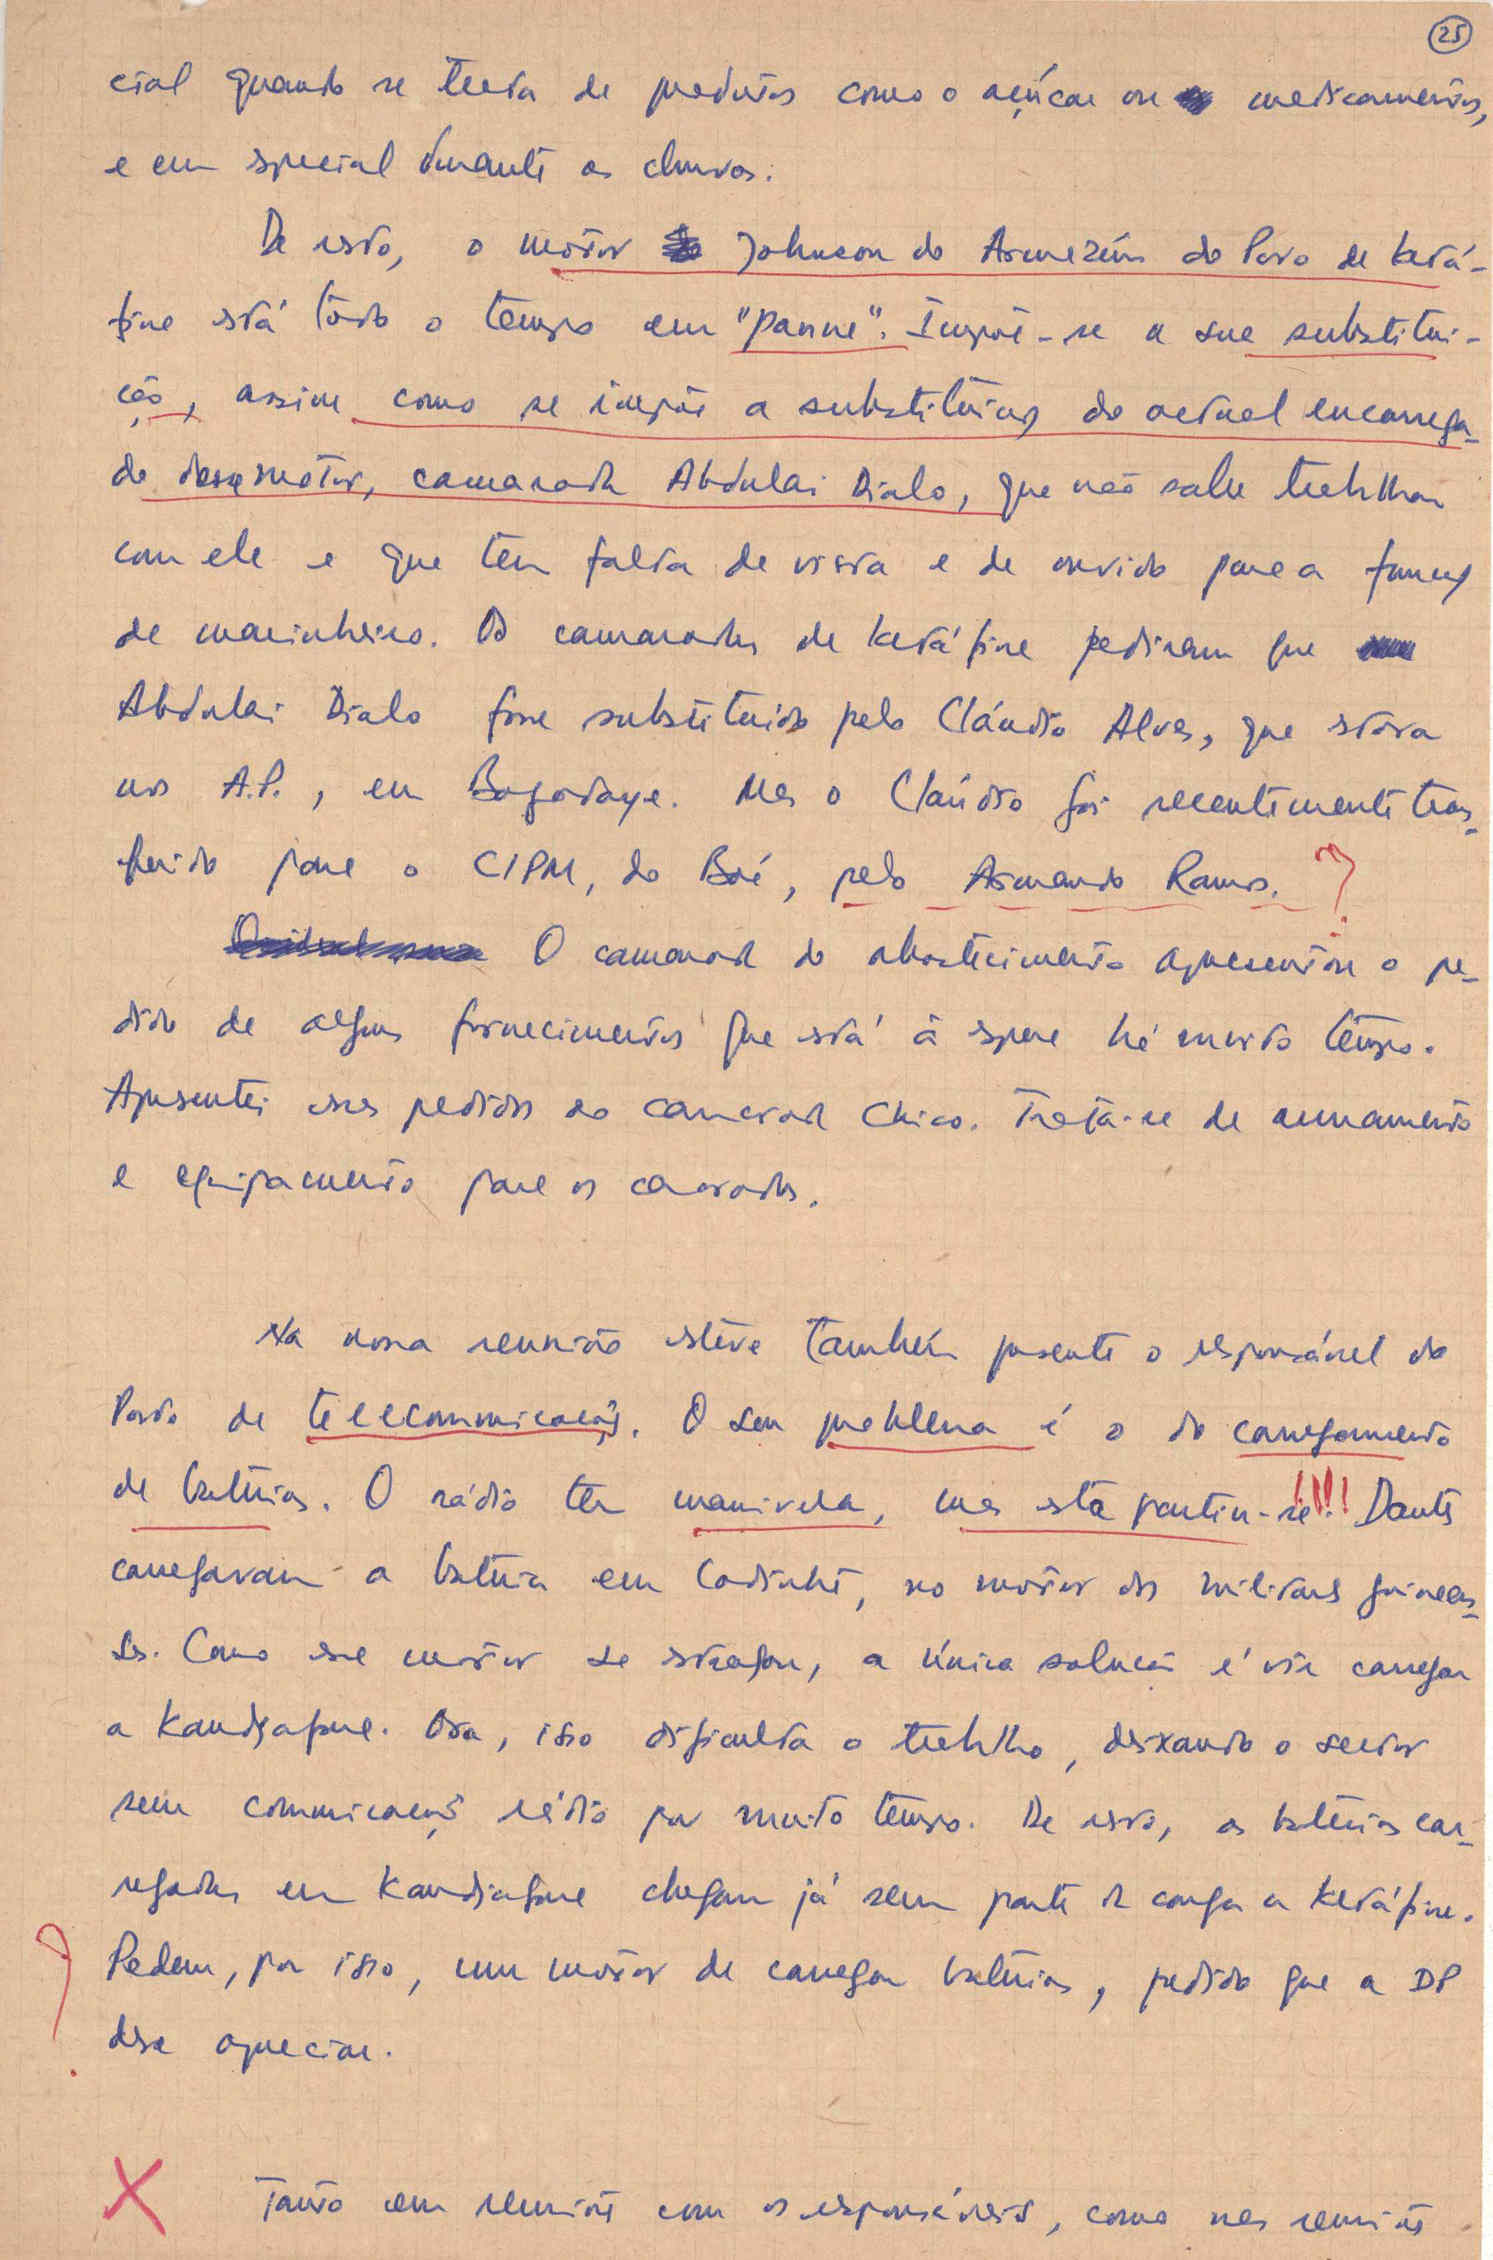 25
cial quando se trata de produtos como o açúcar ou medicamentos,
e em special durante as chuvas.
De resto, o motor Johnson do Armazém do Povo de Ketá-
fine está todo o tempo em "panne". Impõe-se a sua substitui-
ção, assim como se impõe a substituição do actual encarrega-
do desse motor, camarada Abdulai Dialo, que não sabe trabalhar
com ele e que tem falta de vista e de ouvido para a função
de marinheiro. Os camaradas de Ketáfine pediram que
Abdulai Dialo fosse substituido pelo Cláudio Alves, que stava
nos A.P., em Mas o Cláudio foi recentemente trans-
ferido para o CIPM, do Boé, pelo Armando Ramos. ?
O camarada do abastecimento apresentou o pe-
dido de alguns fornecimentos que está à spera há muito tempo.
Apresentei esses pedidos ao camarada Chico. Trata-se de armamento
e equipamento para os camaradas.
Na nossa reunião steve também presente o responsável do
Posto de telecomunicações. O seu problema é o do carregamento
de baterias. O rádio tem manivela, mas stá partiu-se!!! Dantes
carregavam a bateria em Cadinhé, no motor dos militares guineen-
ses. Como esse motor se stragou, a única solução é vir carregar
a Kandjafine. Ora, isso dificulta o trabalho, deixando o sector
sem comunicação rádio por muito tempo. De resto, as baterias car-
regadas em Kandjafine chegam já sem parte da carga a Ketáfine.
? Pedem, por isso, um motor de carregar baterias, pedido que a DP
deve apreciar.
X Tanto em reuniões com os responsáveis, como nas reuniões